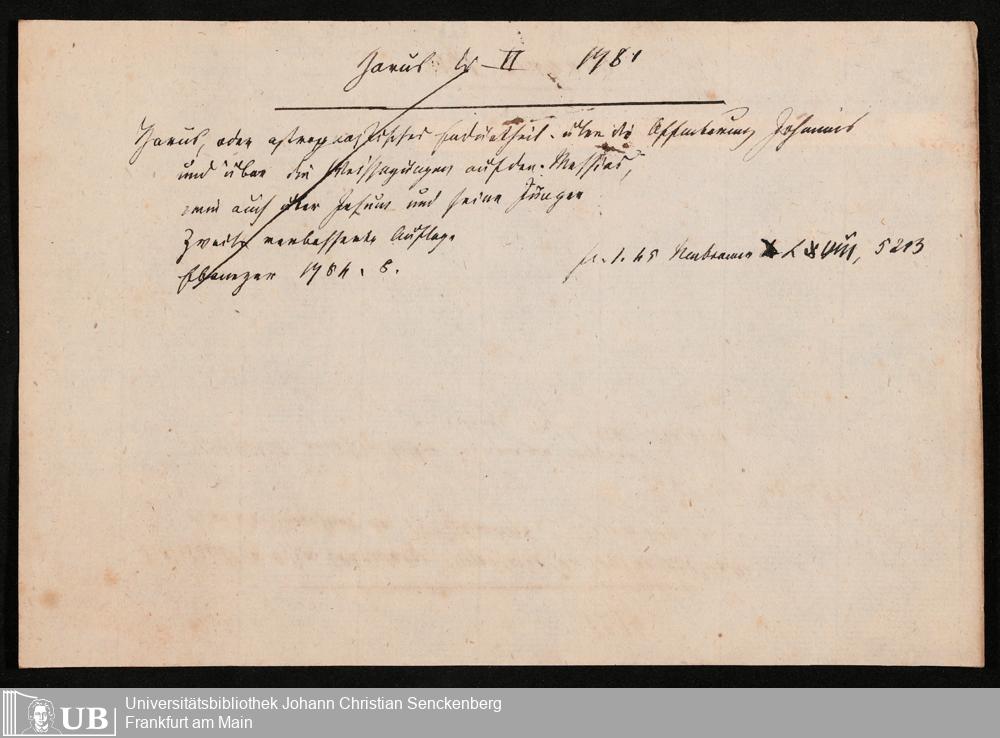 Horus II 1781
Horus, oder astrognostisches Endurtheil über die Offenbarung Johannis
und über die Weissagungen auf den Messias,
wie auch über Jesum und seine Jünger
Zweite verbesserte Auflage
Ebenezer 1784. 8.
1. 45 5213
UB
Universitätsbibliothek Johann Christian Senckenberg
Frankfurt am Main